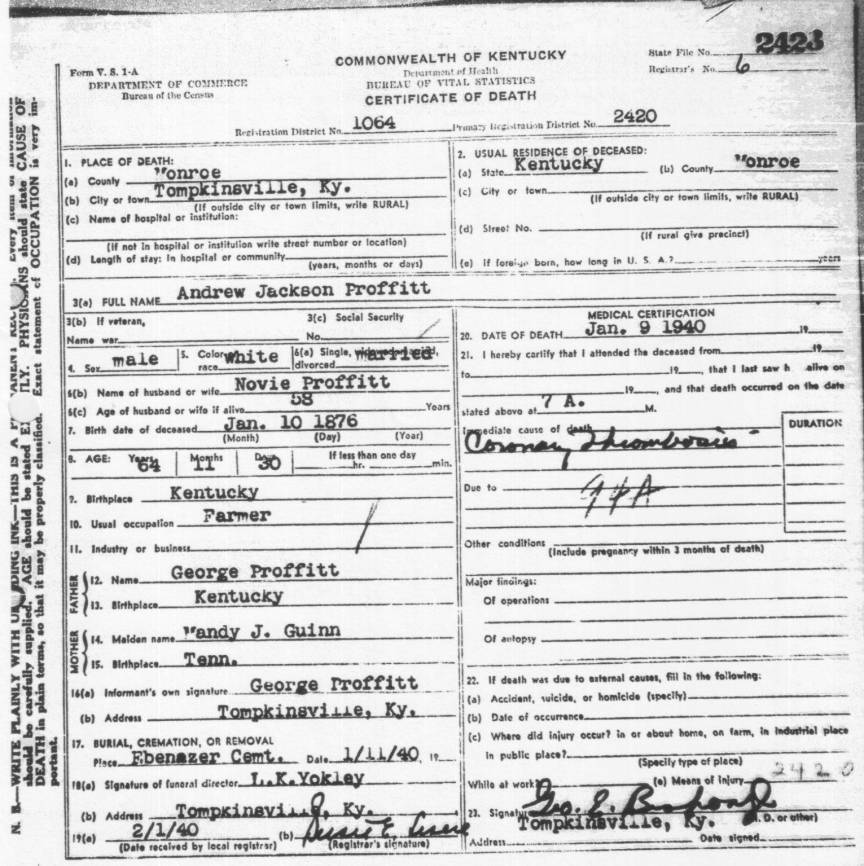 2423
COMMONWEALTH OF KENTUCKY
State File No.
Form V. S. 1-A
Department of Health
Registrar's No. 6
DEPARTMENT OF COMMERCE
BUREAU OF VITAL STATISTICS
Bureau of the Census
CERTIFICATE OF DEATH
Registration District No. 1064 Primary Registration District No. 2420
1. PLACE OF DEATH:
(a) County Monroe
(b) City or town Tompkinsville, Ky.
(If outside city or town limits, write RURAL)
(c) Name of hospital or institution:
(If not in hospital or institution write street number or location)
(d) Length of stay: In hospital or community
(years, months or days)
2. USUAL RESIDENCE OF DECEASED:
(a) State Kentucky (b) County Monroe
(c) City or town
(If outside city or town limits, write RURAL)
(d) Street No.
(If rural give precinct)
(e) If foreign born, how long in U. S. A.? years
3(a) FULL NAME Andrew Jackson Proffitt
3(b) If veteran,
Name war
3(c) Social Security
No.
4. Sex male
5. Color race white
6(a) Single, married
divorced
6(b) Name of husband or wife Novie Proffitt
6(c) Age of husband or wife if alive 58 Years
7. Birth date of deceased Jan. 10 1876
(Month) (Day) (Year)
8. AGE: Years 64 Months 11 Days 30 If less than one day
hr. min.
9. Birthplace Kentucky
10. Usual occupation Farmer
11. Industry or business
FATHER
12. Name George Proffitt
13. Birthplace Kentucky
MOTHER
14. Maiden name Mandy J. Guinn
15. Birthplace Tenn.
16(a) Informant's own signature George Proffitt
(b) Address Tompkinsville, Ky.
17. BURIAL, CREMATION, OR REMOVAL
Place Ebenazer Cemt. Date 1/11/40, 19
18(a) Signature of funeral director L.K.Yokley
(b) Address Tompkinsville, Ky.
19(a) 2/1/40 (b)
(Date received by local registrar) (Registrar's signature)
MEDICAL CERTIFICATION
20. DATE OF DEATH Jan. 9 1940 19
21. I hereby certify that I attended the deceased from 19
to 19, that I last saw h alive on
19, and that death occurred on the date
stated above at 7 A. M.
Immediate cause of death
DURATION
Coronary Thrombosis
Due to 94A
Other conditions
(Include pregnancy within 3 months of death)
Major findings:
Of operations
Of autopsy
22. If death was due to external causes, fill in the following:
(a) Accident, suicide, or homicide (specify)
(b) Date of occurrence
(c) Where did injury occur? in or about home, on farm, in industrial place
in public place?
(Specify type of place)
2420
While at work? (e) Means of injury
23. Signature Geo. E.
(M. D. or other)
Tompkinsville, Ky.
Address Date signed
N. B.—WRITE PLAINLY WITH UNFADING INK—THIS IS A PERMANENT RECORD. Every item of information
should be carefully supplied. AGE should be stated EXACTLY. PHYSICIANS should state CAUSE OF
DEATH in plain terms, so that it may be properly classified. Exact statement of OCCUPATION is very im-
portant.